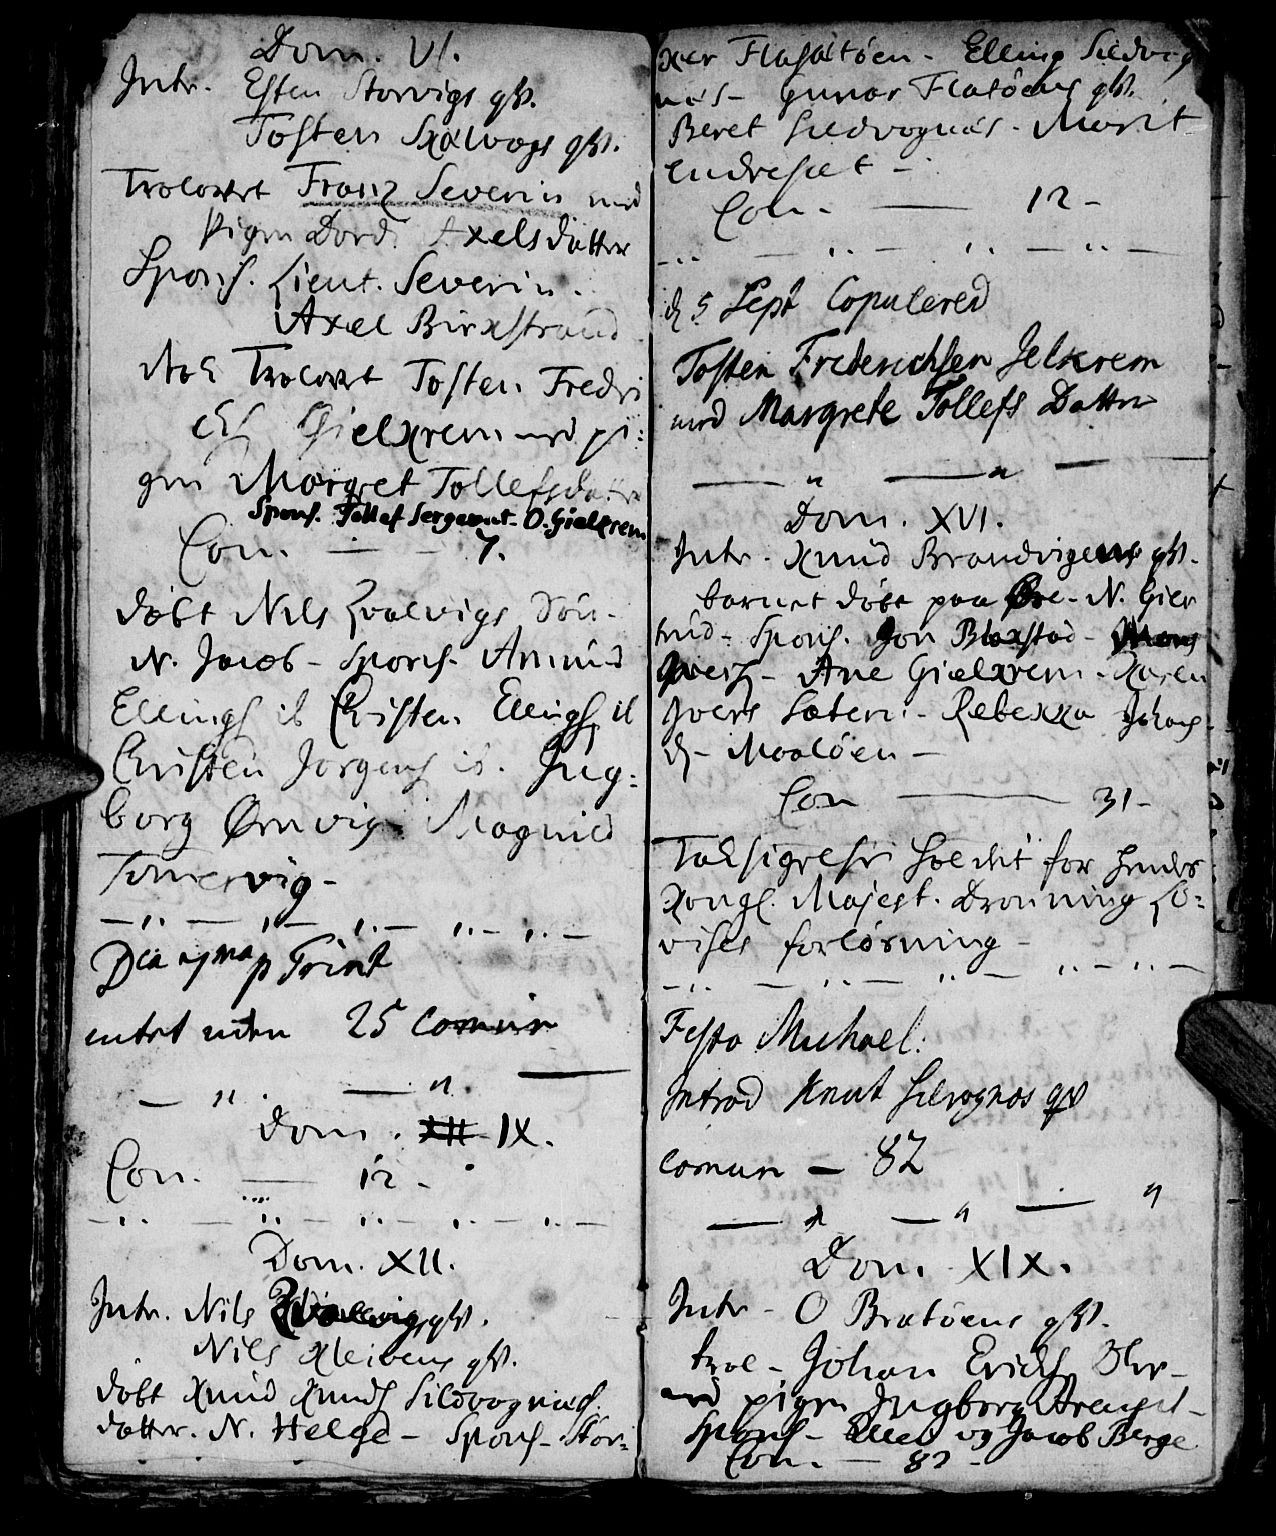 Dom. VI.
Intr. Esten Storvigs qv.
Tosten Sxalvogs qv.
Trolovet Franz Severin med
Pigen Dord. Axelsdatter
Spons. Lieut. Severin.
Axel Birxstrand
Nok Trolovet Tosten Fredri
chs. Gielxrem med pi:
gen Margret Tollefsdatter
Spons. Tollef Sergeant. O. Gielxrem
Com. — 7.
döbt Nils Qvalvigs Sön.
N. Jacob - Spons. Amund
Ellings. ib Christen Ellings. ib
Christen Jörgens. ib. Jng:
borg Ørnvig Magnild
Tømervig -
Dca 7ma p Trint
intet uden 25 comun
Dom. XII IX.
Con. — 12 -
Dom. XII.
Intr. Nils Qvalvigs qv.
Nils Xleivens qv.
döbt Xnud Xnuds. Sildvognæs.
datter. N. Helge - Spons - Stor:
xer Flasætöen - Elling Sildvog
næs - Gunor Flatöens qv.
Beret Sildvognæs - Marit
Endresæt -
Con. — 12 -
d 5 Sept Copulered
Tosten Frederichsen Jelkrem
med Margrete Tollefs Datter
Dom. XVI.
Intr. Xnud Brandvigens qv.
barnet döbt paa Øre - N. Gier
trud - Spons. Jon Blaxstad -
Jvers. - Ane Gielxrem - Karen
Jvers Sæter: - Rebexxa Johans
d. - Maalöen -
Con — 31 -
Taksigelse holdet for hendes
Xongl. Majest. Dronning Lo:
vises forlösning -
Festo Michael:
Introd Knut Silvognæs qv
Comun — 82
Dom. XIX.
Intr - O Bratöens qv.
trol - Johan Erichs.
med pigen Jngborg
Spons - og Jacob Berge
Con. — 82 -